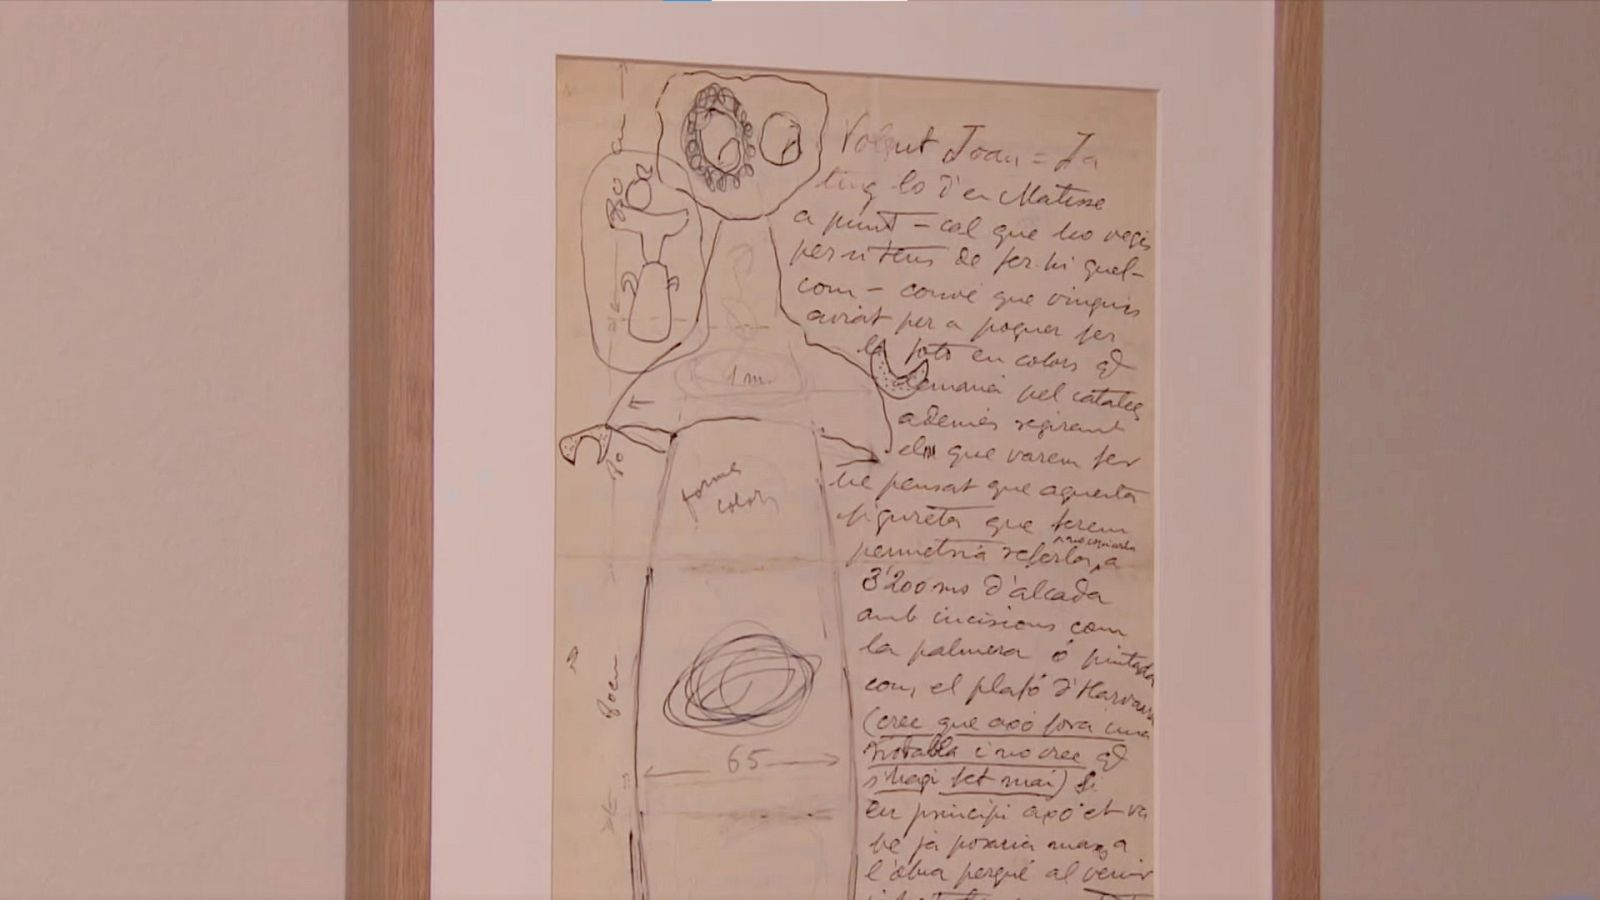 Volgut Joan = Ja
tinc lo d'en Matisse
a punt - cal que ho vegis
per si tens de fer-hi quel-
com - convé que vinguis
aviat per a poguer fer
la foto en colors qe
demana pel catàleg
ademés seguirant
el que varem fer
he pensat que aquesta
figureta que ferem
permetria referla, a
3'200 ms d'alçada
amb incisions com
la palmera ó pintada
com el plafó d'Harvard
(crec que axó fora una
i no crec qe
s'hagi fet mai) Si
en principi axó et va
be ja posaria mans a
l'obra perqué al venir
80 cm
1 m.
forms
colors
80 cm
65